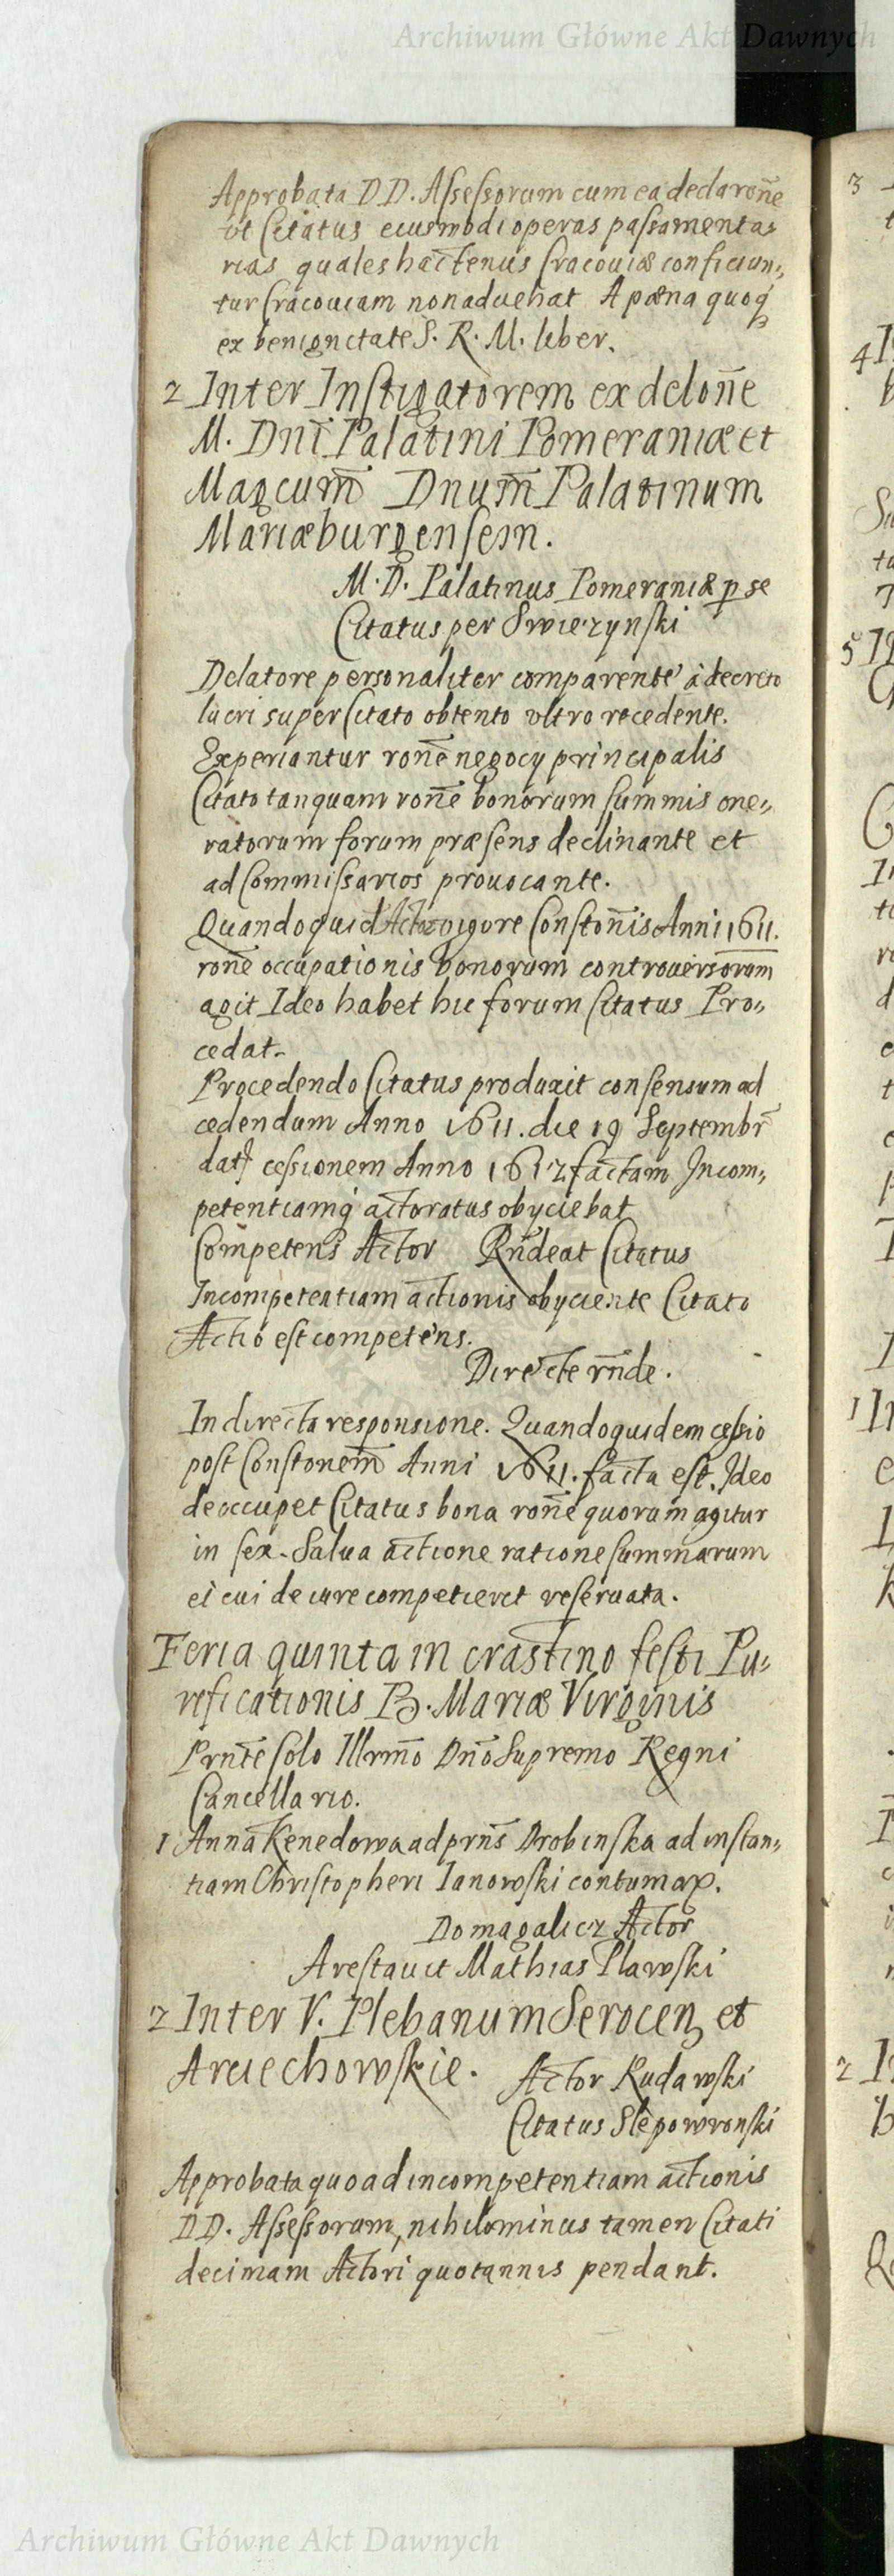 Archiwum Główne Akt Dawnych
Approbata DD. Assessorum cum ea declarõne
ut Citatus eiusmodi operas passamenta,
rias quales hactenus Cracouiæ conficiun,,
tur Cracouiam non aduehat A pæna quoq
ex benignitate S. R. M. liber.
2 Inter Instigatorem ex delõne
M. Dni Palatini Pomeraniæ et
Magcum Dnum Palatinum
Mariæburgensem.
M. D. Palatinus Pomeraniæ p se
Citatus per Swierzynski
Delatore personaliter comparente à decreto
lucri super Citato obtento vltro recedente.
Experiantur rone negocy principalis
Citato tanquam rone bonorum summis one,,
ratorum forum præsens declinante et
ad Commissarios prouocante.
Quandoquid Actor vigore Constonis Anni 1611.
rone occupationis bonorum controuersorum
agit Ideo habet hic forum Citatus Pro,,
cedat.
Procedendo Citatus produxit consensum ad
cedendum Anno 1611. die 19 Septembr
dat cessionem Anno 1612 factam Incom,,
petentiamq actoratus obyciebat
Competens Actor Rndeat Citatus
Incompetentiam actionis obyciente Citato
Actio est competens.
Directe rnde.
In directa responsione. Quandoquidem cessio
post Constonem Anni 1611. facta est. Ideo
deoccupet Citatus bona rone quorum agitur
in sex. Salua actione ratione summarum
ei cui de iure competieret reseruata.
Feria quinta in crastino festi Pu,
rificationis B. Mariæ Virginis
Prnte solo Illrmo Dno Supremo Regni
Cancellario.
1 Anna Kenedowa ad prns Drobinska ad instan,,
tiam Christopheri Ianowski contumax.
Domagalicz Actor
Arestauit Mathias Plawski
2 Inter V. Plebanum Serocen et
Arciechowskie. Actor Rudawski
Citatus Slepowronski
Approbata quoad incompetentiam actionis
DD. Assessorum, nihilominus tamen Citati
decimam Actori quotannis pendant.
Archiwum Główne Akt Dawnych